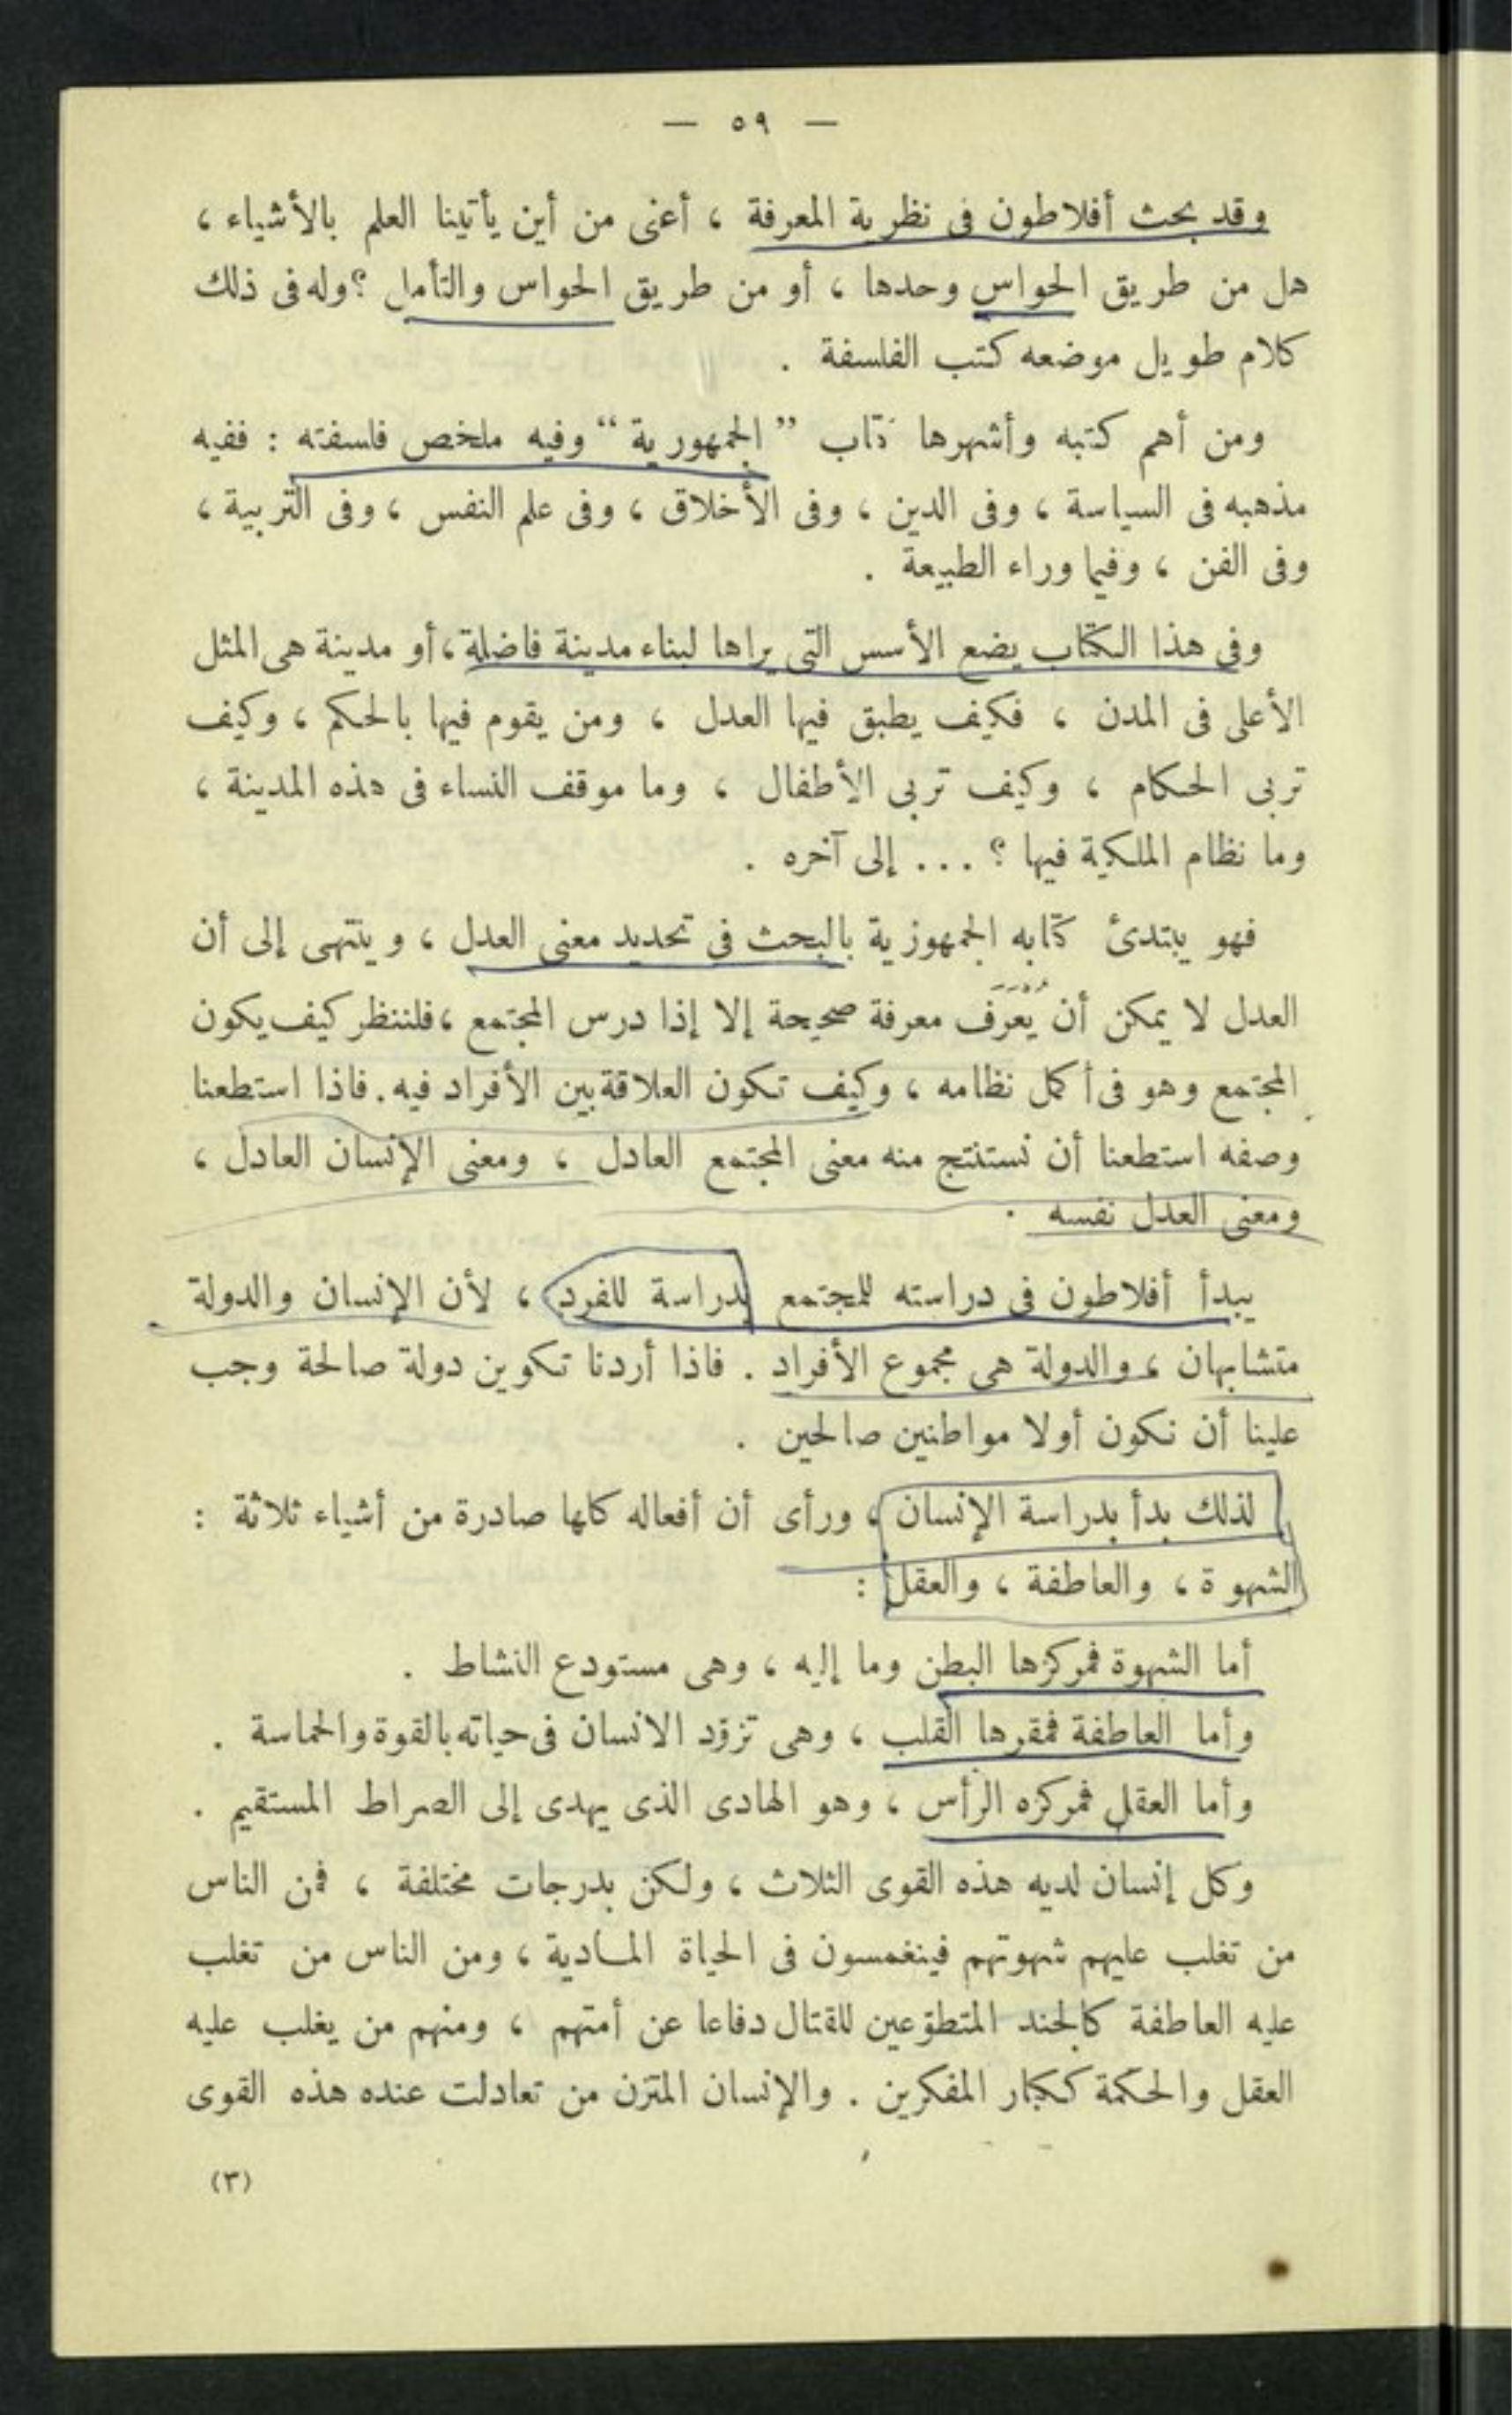 — ٥٩ —
وقد بحث أفلاطون فى نظرية المعرفة ، أعنى من أين يأتينا العلم بالأشياء ،
هل من طريق الحواس وحدها ، أو من طريق الحواس والتأمل ؟ وله فى ذلك
كلام طويل موضعه كتب الفلسفة .
ومن أهم كتبه وأشهرها كتاب ” الجمهورية “ وفيه ملخص فلسفته : ففيه
مذهبه فى السياسة ، وفى الدين ، وفى الأخلاق ، وفى علم النفس ، وفى التربية ،
وفى الفن ، وفيما وراء الطبيعة .
وفى هذا الكتاب يضع الأسس التى يراها لبناء مدينة فاضلة ، أو مدينة هى المثل
الأعلى فى المدن ، فكيف يطبق فيها العدل ، ومن يقوم فيها بالحكم ، وكيف
تربى الحكام ، وكيف تربى الأطفال ، وما موقف النساء فى هذه المدينة ،
وما نظام الملكية فيها ؟ ... إلى آخره .
فهو يبتدئ كتابه الجمهوزية بالبحث فى تحديد معنى العدل ، وينتهى إلى أن
العدل لا يمكن أن يُعرَف معرفة صحيحة إلا إذا درس المجتمع ، فلننظر كيف يكون
المجتمع وهو فى أكمل نظامه ، وكيف تكون العلاقة بين الأفراد فيه . فاذا استطعنا
وصفه استطعنا أن نستنتج منه معنى المجتمع العادل ، ومعنى الإنسان العادل ،
ومعنى العدل نفسه .
يبدأ أفلاطون فى دراسته للمجتمع بدراسة للفرد ، لأن الإنسان والدولة
متشابهان ، والدولة هى مجموع الأفراد . فاذا أردنا تكوين دولة صالحة وجب
علينا أن نكون أولا مواطنين صالحين .
لذلك بدأ بدراسة الإنسان ، ورأى أن أفعاله كلها صادرة من أشياء ثلاثة :
الشهوة ، والعاطفة ، والعقل :
أما الشهوة فمركزها البطن وما إليه ، وهى مستودع النشاط .
وأما العاطفة فمقرها القلب ، وهى تزوّد الانسان فى حياته بالقوة والحماسة .
وأما العقل فمركزه الرأس ، وهو الهادى الذى يهدى إلى الصراط المستقيم .
وكل إنسان لديه هذه القوى الثلاث ، ولكن بدرجات مختلفة ، فمن الناس
من تغلب عليهم شهوتهم فينغمسون فى الحياة المادية ، ومن الناس من تغلب
عليه العاطفة كالجند المتطوّعين للقتال دفاعا عن أمتهم ، ومنهم من يغلب عليه
العقل والحكمة ككبار المفكرين . والإنسان المتزن من تعادلت عنده هذه القوى
(٣)